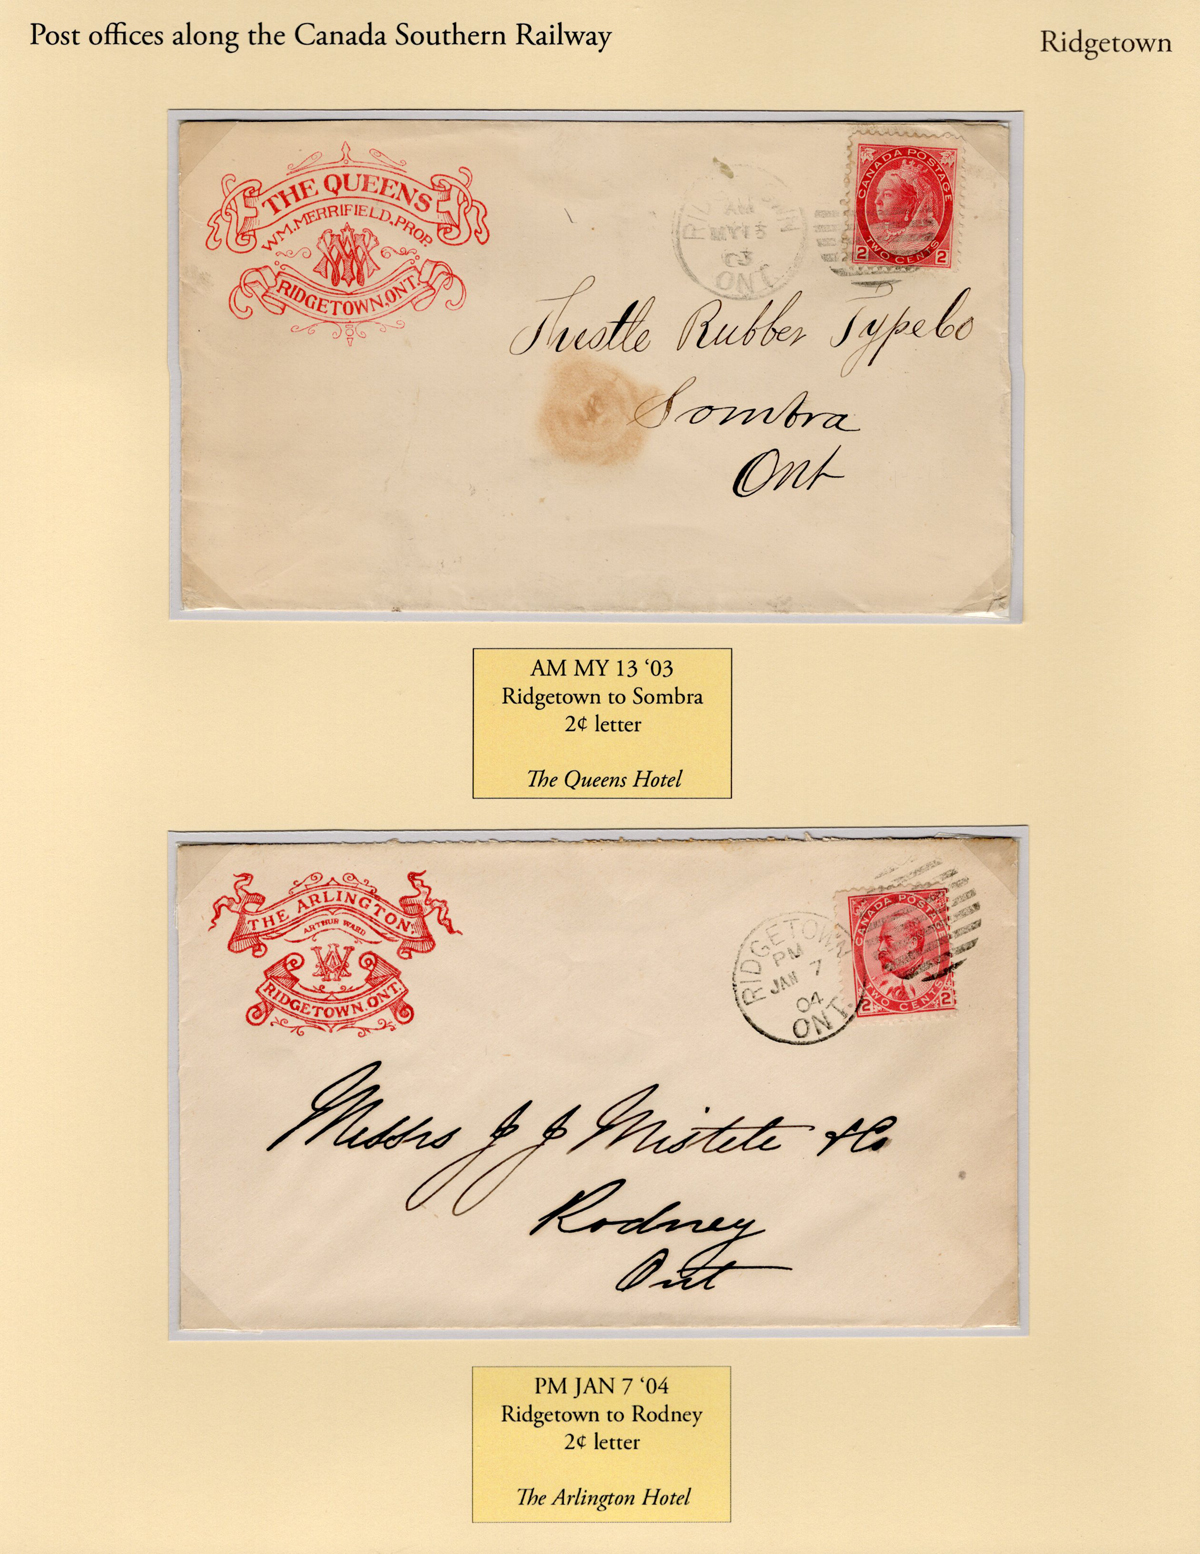 Post offices along the Canada Southern Railway
Ridgetown
THE QUEENS
WM. MERRIFIELD, PROP.
RIDGETOWN, ONT.
AM
MY 13
03
ONT.
CANADA POSTAGE
TWO CENTS
2 2
Thistle Rubber Type Co
Sombra
Ont
AM MY 13 ‘03
Ridgetown to Sombra
2¢ letter
The Queens Hotel
THE ARLINGTON,
ARTHUR WARD
AW
RIDGETOWN, ONT.
RIDGETOWN
PM
JAN 7
04
ONT.
CANADA POSTAGE
TWO CENTS
2 2
Messrs J J Mistele & Co
Rodney
Ont
PM JAN 7 ‘04
Ridgetown to Rodney
2¢ letter
The Arlington Hotel